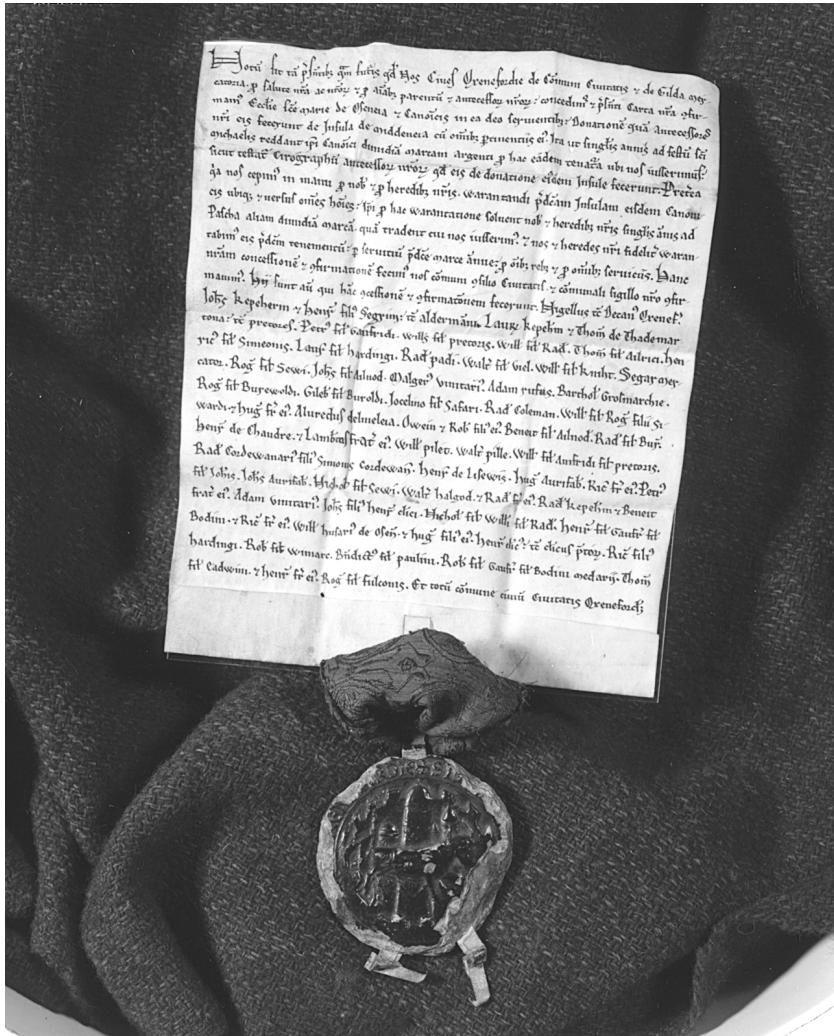 Notū sit tā p̄sētibȝ q̄m futˀis qd̄ Nos Cives Oxenefordie de Cōmuni Civitatis ⁊ de Gilda mer
catoria. ꝓ salute nr̄a ac nr̄oꝝ ⁊ ꝓ aīabȝ parentū ⁊ antecessoꝝ nr̄oꝝ: concedimˀ ⁊ p̄senti Carta nr̄a ꝯfir
mamˀ Ecclie scē marie de Oseneia ⁊ Canōicis in ea deo servientibȝ: Donationē quā antecessores
nr̄i eis fecerunt de Insula de middeneia cū om̄ibȝ ꝑtinentiis ei. Ita ut singlis annis ad festū scī
michaelis reddant ip̄i Canōici dimidiā marcam argenti ꝓ hac eadem tenat̄a ubi nos iusserimˀ
sicut testat̄ Cirographū antecessoꝝ nr̄oꝝ qd̄ eis de donatione eisdem Insule fecerunt. Pret̄ea
q̄a nos cepimˀ in manu ꝓ nob̄ ⁊ ꝓ heredibȝ nr̄is. warantandi p̄dc̄am Insulam eisdem Canōi
eis ubiqȝ ⁊ versus om̄es hōies: ip̄i ꝓ hac warantatione solvent nob̄ ⁊ heredibȝ nr̄is singlis ānis ad
Pascha aliam dimidiā marcā. quā tradent cui nos iusserimˀ. ⁊ nos ⁊ heredes nr̄i fidelit̄ waran
tabimˀ eis p̄dc̄m tenementū: ꝓ servitiū p̄dc̄e marce ānue: ꝓ oībȝ rebȝ ⁊ ꝓ om̄ibȝ serviciis. Hanc
nr̄am concessionē ⁊ ꝯfirmationē fecimˀ nos cōmuni ꝯsilio Civitatis ⁊ cōmunali sigillo nr̄o ꝯfir
mavimˀ. Hii sunt aūt qui hāc ꝯcessionē ⁊ ꝯfirmationem fecerunt. Nigellus tc̄ Decanˀ Oxenef̄.
Joh̄s Kepeherm ⁊ Henr̄ filˀ Segrim: tc̄ aldermānis. Laur̄ Kepehm ⁊ Thom̄ de Thademar
tona: tc̄ pretores. Petrˀ fil̄ Gaufridi. Will̄s fil̄ pretoris. Will̄ fil̄ Rad̄. Thom̄ fil̄ Ailrici. Hen
ricˀ fil̄ Simeonis. Laur̄ fil̄ Hardingi. Rad̄ padi. Walt̄ fil̄ viel. Will̄ fil̄ Kniht. Segar mer
cator. Roḡ fil̄ Sewi. Joh̄s fil̄ Ailnod. Malgerˀ vinitariˀ. Adam rufus. Barthol̄ Grosmarche.
Roḡ fil̄ Burewoldi. Gileb̄ fil̄ Buroldi. Jocelino fil̄ Safari. Rad̄ Coleman. Will̄ fil̄ Roḡ filii Si
wardi ⁊ hug̃ fr̄ eiˀ. Aluredus delmeleia. Owein ⁊ Rob̄ filˀ eiˀ. Beneit fil̄ Ailnod. Rad̄ fil̄ Bur̄.
Henr̄ de Chaudre. ⁊ Lamb̄ frat̄ eiˀ. Will̄ pilet. Walt̄ pille. Will̄ fil̄ Anfridi fil̄ pretoris.
Rad̄ Cordewanariˀ filˀ Simonis Cordewan̄. Henr̄ de Lisewis. Hug̃ Aurifab̄. Ric̄ fr̄ eiˀ. Petrˀ
fil̄ Joh̄is. Joh̄s Aurifab̄. Nichol̄ fil̄ Sewi. Walt̄ halgod. ⁊ Rad̄ fr̄ eiˀ. Rad̄ Kepehm ⁊ Beneit
frat̄ eiˀ. Adam vinitariˀ. Joh̄s filˀ Henr̄ clici. Nichol̄ fil̄ Will̄i fil̄ Rad̄. Henr̄ fil̄ Gaufr̄ fil̄
Bodini. ⁊ Ric̄ fr̄ eiˀ. Will̄ husarˀ de Osen̄. ⁊ hug̃ filˀ eiˀ. Henr̄ clicˀ: tc̄ clicus p̄toꝝ. Ric̄ filˀ
hardingi. Rob̄ fil̄ wimarc. Bn̄dictˀ fil̄ paulini. Rob̄ fil̄ Gaufr̄ fil̄ Bodini medarii. Thom̄
fil̄ Eadwini. ⁊ henr̄ fr̄ eiˀ. Roḡ fil̄ fulconis. Et totū cōmune civiū Civitatis Oxenefordȝ